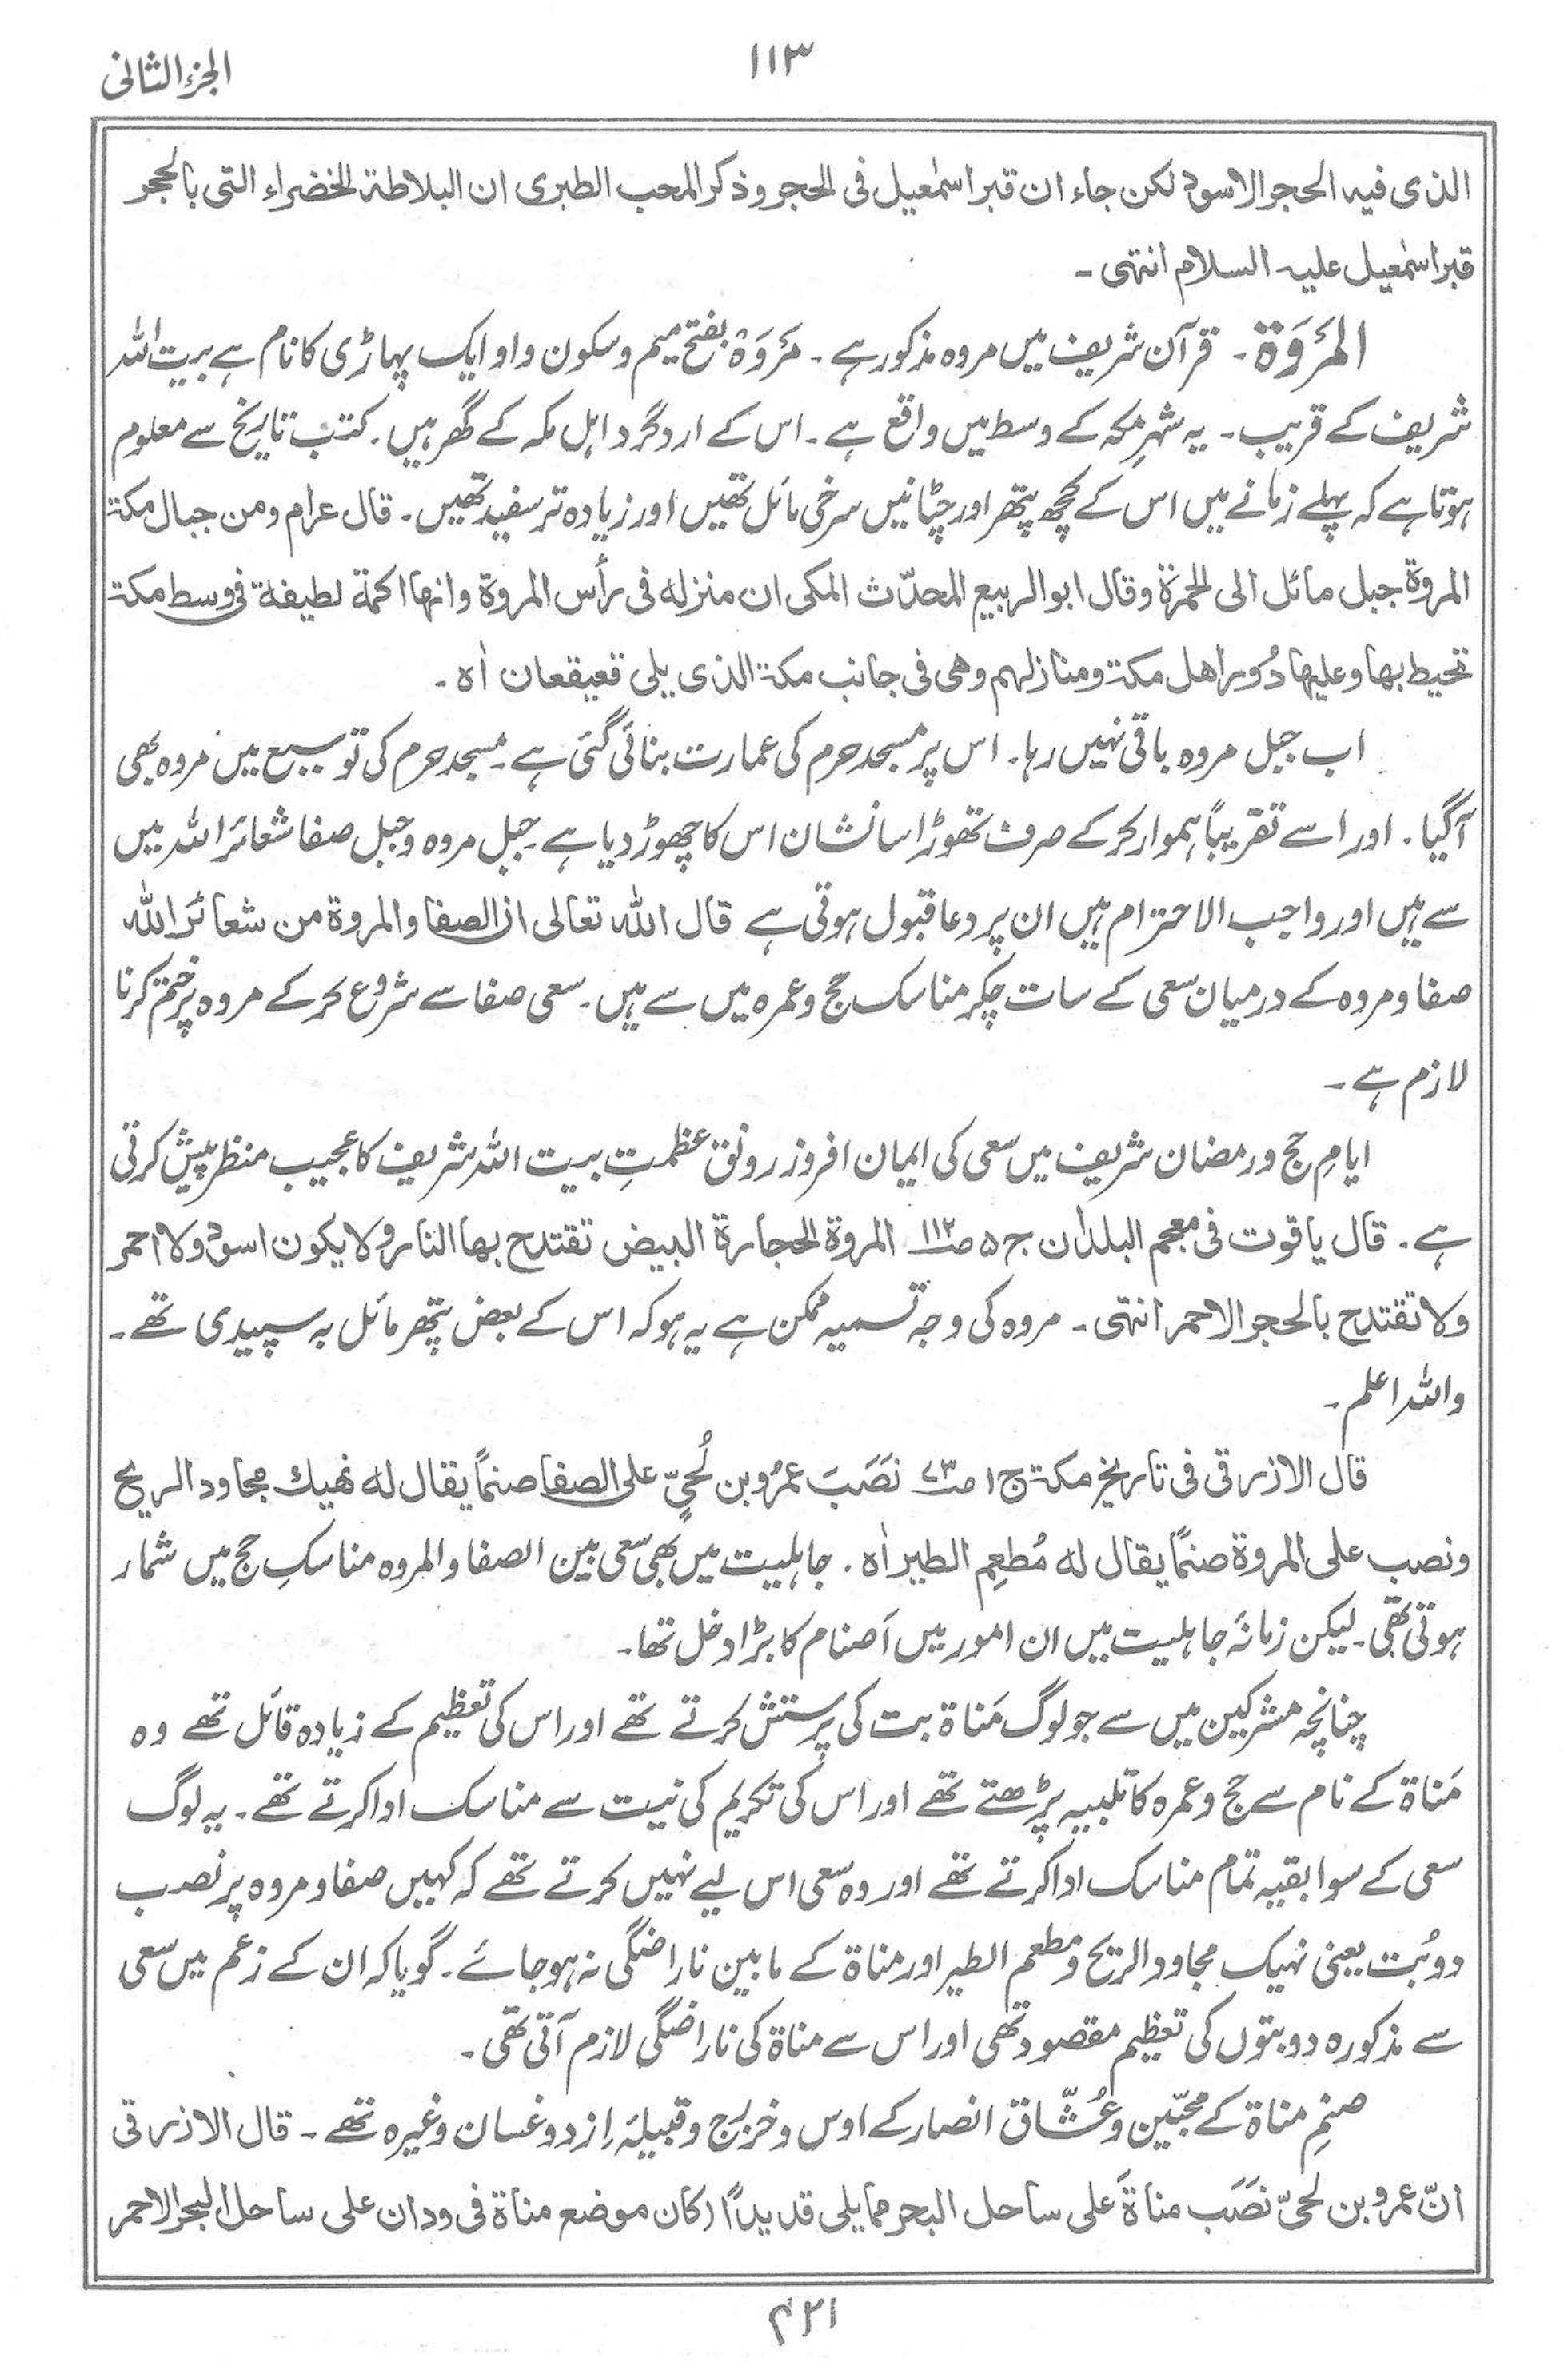 ۱۱۳
الجزء الثانی
الذی فیہ الحجر الاسود لکن جاء ان قبر اسمٰعیل فی الحجر وذکر المحب الطبری ان البلاطۃ الخضراء التی بالحجر
قبر اسمٰعیل علیہ السلام انتہی ۔
المَرْوَۃ ۔ قرآن شریف میں مروہ مذکور ہے ۔ مَرْوَۃْ بفتح میم وسکون واو ایک پہاڑی کا نام ہے بیت اللہ
شریف کے قریب ۔ یہ شہرِ مکہ کے وسط میں واقع ہے ۔ اس کے ارد گرد اہل مکہ کے گھر ہیں ۔ کتب تاریخ سے معلوم
ہوتا ہے کہ پہلے زمانے میں اس کے کچھ پتھر اور چٹانیں سرخی مائل تھیں اور زیادہ تر سفید تھیں ۔ قال عرام ومن جبال مکۃ
المروۃ جبل مائل الی الحمرۃ وقال ابوالربیع المحدّث المکی ان منزلہ فی رأس المروۃ وانھا اکمۃ لطیفۃ فی وسط مکۃ
تحیط بھا وعلیھا دُور اھل مکۃ ومنازلہم وھی فی جانب مکۃ الذی یلی قعیقعان اٰہ ۔
اب جبل مروہ باقی نہیں رہا ۔ اس پر مسجد حرم کی عمارت بنائی گئی ہے ۔ مسجد حرم کی توسیع میں مروہ بھی
آگیا ۔ اور اسے تقریباً ہموار کرکے صرف تھوڑا سا نشان اس کا چھوڑ دیا ہے ۔ جبل مروہ وجبل صفا شعائر اللہ میں
سے ہیں اور واجب الاحترام ہیں ان پر دعا قبول ہوتی ہے قال اللہ تعالی ان الصفا والمروۃ من شعائر اللہ
صفا ومروہ کے درمیان سعی کے سات چکر مناسک حج وعمرہ میں سے ہیں ۔ سعی صفا سے شروع کرکے مروہ پر ختم کرنا
لازم ہے ۔
ایامِ حج ورمضان شریف میں سعی کی ایمان افروز رونق عظمتِ بیت اللہ شریف کا عجیب منظر پیش کرتی
ہے ۔ قال یاقوت فی معجم البلدان ج ۵ ص۱۱۲ المروۃ الحجارۃ البیض تقتدح بھا النار ولا یکون اسود ولا احمر
ولا تقتدح بالحجر الاحمر انتہی ۔ مروہ کی وجہ تسمیہ ممکن ہے یہ ہو کہ اس کے بعض پتھر مائل بہ سپیدی تھے ۔
واللہ اعلم ۔
قال الازرقی فی تاریخ مکۃ ج ۱ ص۷۳ نَصَبَ عمرُو بن لُحَیّ علی الصفا صنمًا یقال لہ نھیک مجاود الریح
ونصب علی المروۃ صنمًا یقال لہ مُطعِم الطیر اٰہ ۔ جاہلیت میں بھی سعی بین الصفا والمروہ مناسکِ حج میں شمار
ہوتی تھی ۔ لیکن زمانۂ جاہلیت میں ان امور میں اَصنام کا بڑا دخل تھا ۔
چنانچہ مشرکین میں سے جو لوگ مَناۃ بت کی پرستش کرتے تھے اور اس کی تعظیم کے زیادہ قائل تھے وہ
مَناۃ کے نام سے حج وعمرہ کا تلبیہ پڑھتے تھے اور اس کی تکریم کی نیت سے مناسک ادا کرتے تھے ۔ یہ لوگ
سعی کے سوا بقیہ تمام مناسک ادا کرتے تھے اور وہ سعی اس لیے نہیں کرتے تھے کہ کہیں صفا ومروہ پر نصب
دو بُت یعنی نہیک مجاود الریح و مطعم الطیر اور مناۃ کے مابین ناراضگی نہ ہو جائے ۔ گویا کہ ان کے زعم میں سعی
سے مذکورہ دو بتوں کی تعظیم مقصود تھی اور اس سے مناۃ کی ناراضگی لازم آتی تھی ۔
صنمِ مناۃ کے محبّین وعُشّاق انصار کے اوس وخزرج وقبیلۂ ازد وغسان وغیرہ تھے ۔ قال الازرقی
انّ عمرو بن لحیّ نَصَب مناۃَ علی ساحل البحر ممایلی قدیدًا (کان موضع مناۃ فی ودان علی ساحل البحر الاحمر
۴۲۱